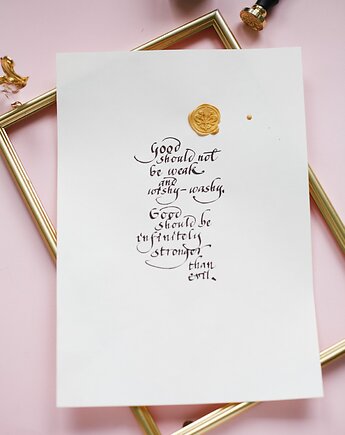 Good
should not
be weak
and
wishy-washy.
Good
should be
infinitely
stronger
than
evil.